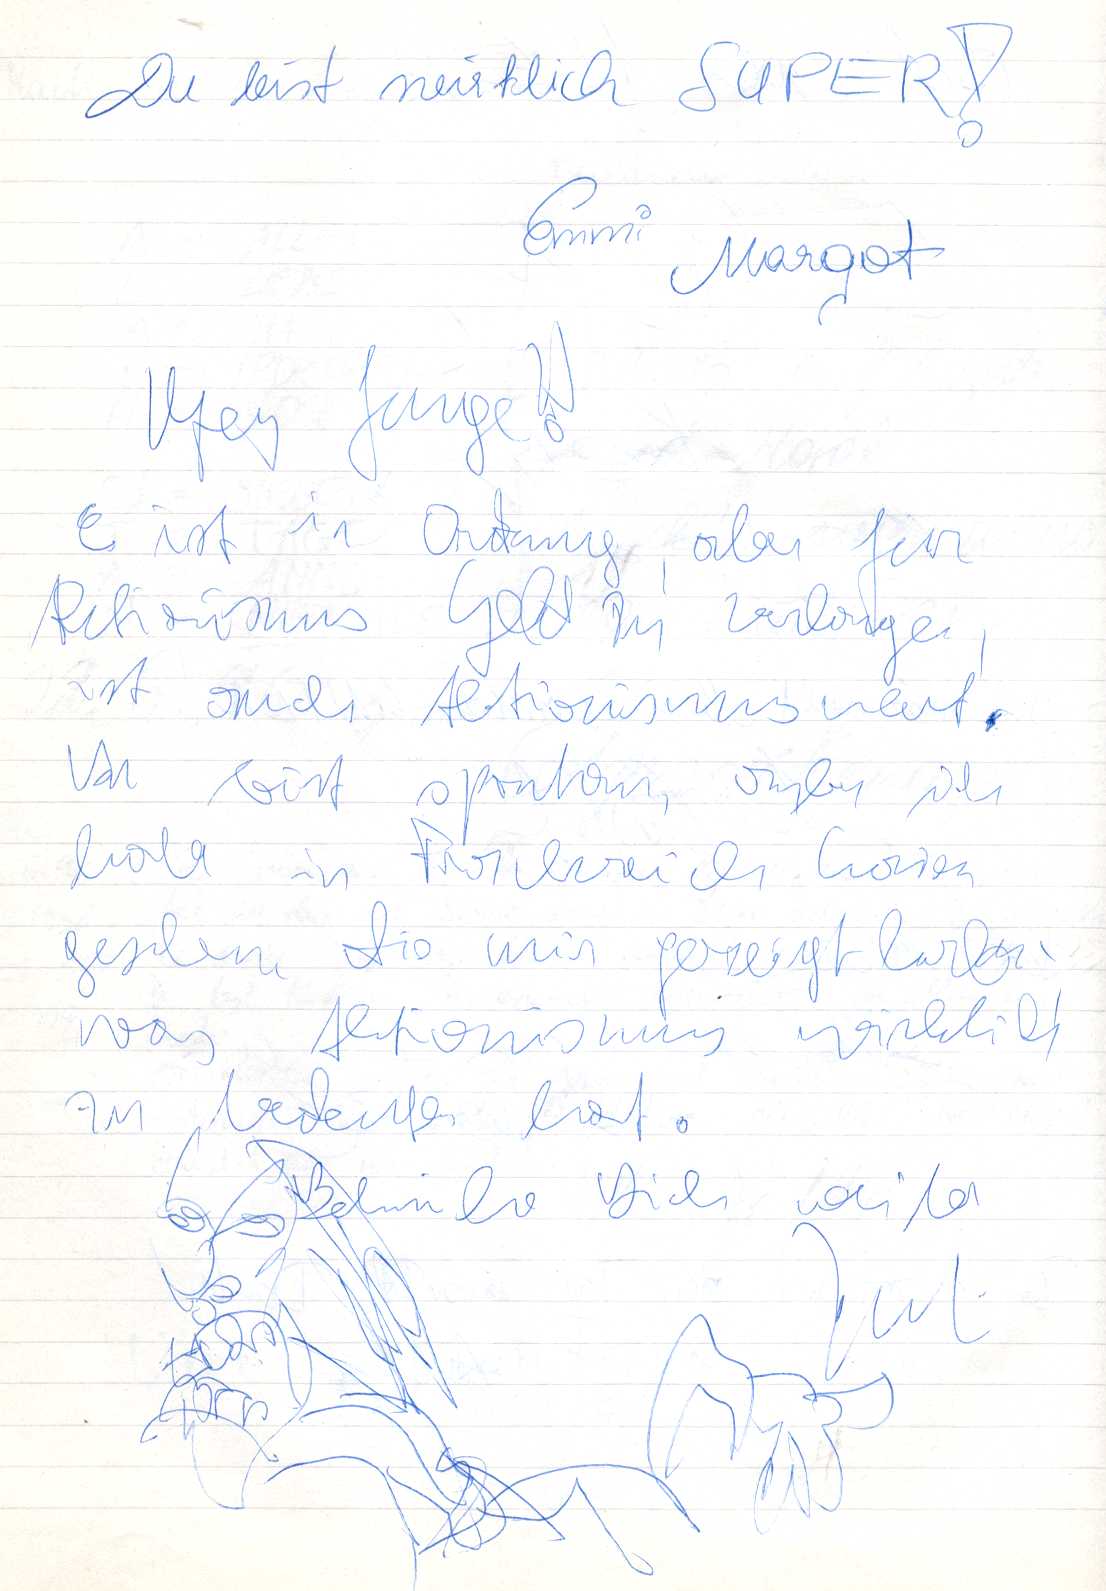 Du bist wirklich SUPER!
Emmi
Margot
Hey Junge!
Es ist in Ordnung, aber für
Aktionismus Geld zu verlangen,
ist auch Aktionismus wert.
Du bist spontan, aber ich
habe in Frankreich
gesehen, die mir gezeigt haben
was Aktionismus wirklich
zu bedeuten hat.
Bemühe Dich weiter